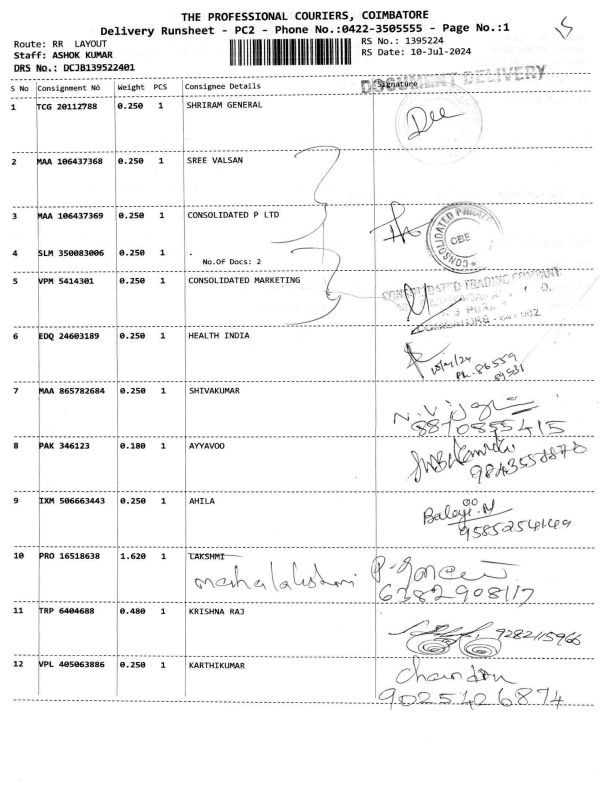 THE PROFESSIONAL COURIERS, COIMBATORE
Delivery Runsheet - PC2 - Phone No.:0422-3505555 - Page No.:1
Route: RR LAYOUT
RS No.: 1395224
Staff: ASHOK KUMAR
RS Date: 10-Jul-2024
DRS No.: DCJB139522401
DOCUMENT DELIVERY
S No Consignment No Weight PCS Consignee Details Signature
1 TCG 20112788 0.250 1 SHRIRAM GENERAL
2 MAA 106437368 0.250 1 SREE VALSAN
3 MAA 106437369 0.250 1 CONSOLIDATED P LTD
CONSOLIDATED PRIVATE
CBE
4 SLM 350083006 0.250 1 .
No.Of Docs: 2
5 VPM 5414301 0.250 1 CONSOLIDATED MARKETING
CONSOLIDATED TRADING COMPANY
6 EDQ 24603189 0.250 1 HEALTH INDIA
Ph. 86559
89531
7 MAA 865782684 0.250 1 SHIVAKUMAR
8870855415
8 PAK 346123 0.180 1 AYYAVOO
9843558870
9 IXM 506663443 0.250 1 AHILA
Balaji.M
9585254149
10 PRO 16518638 1.620 1 LAKSHMI
mahalakshmi
6382908117
11 TRP 6404688 0.480 1 KRISHNA RAJ
9282115966
12 VPL 405063886 0.250 1 KARTHIKUMAR
Chandru
9025426874